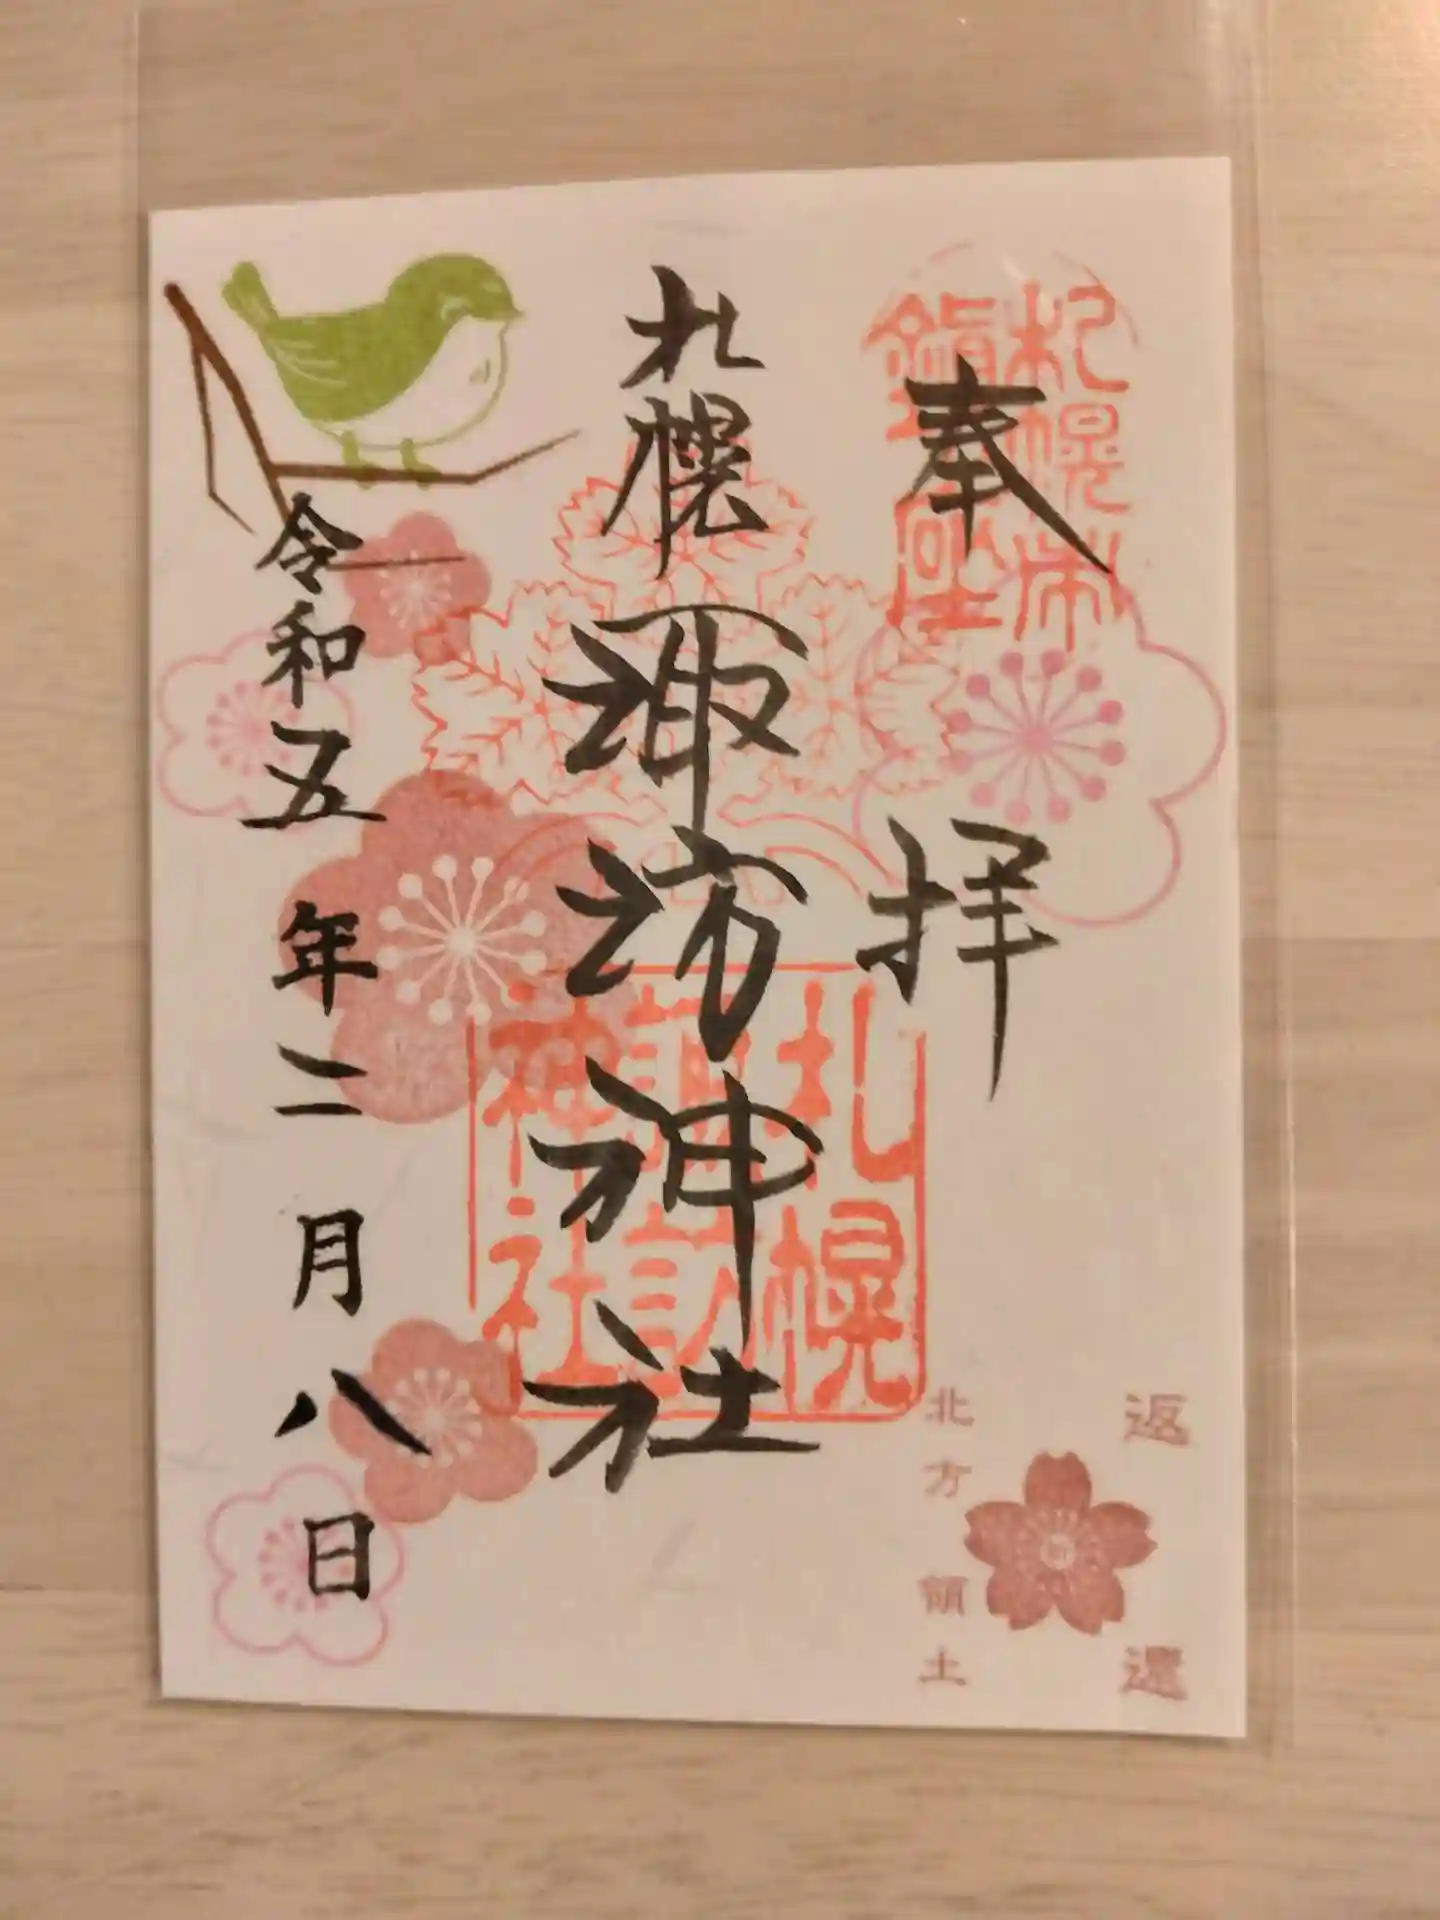 奉拝
札幌市
鎮座
札幌諏訪神社
札幌
諏訪
神社
令和五年二月八日
返還
北方領土